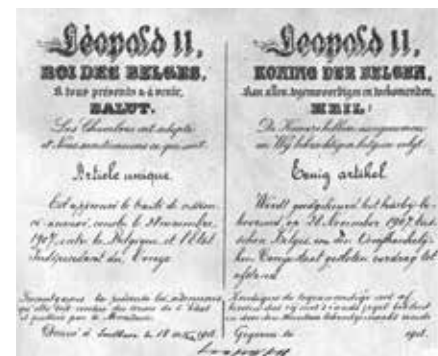 Léopold II,
ROI DES BELGES,
A tous présents & à venir,
SALUT.
Les Chambres ont adopté
et Nous sanctionnons ce qui suit:
Article unique.
Est approuvé le traité de cession
ci-annexé, conclu le 28 novembre
1907, entre la Belgique et l'État
Indépendant du Congo.
Promulguons la présente loi, ordonnons
qu'elle soit revêtue du sceau de l'État
et publiée par le Moniteur.
Donné à le 18 1908.
Leopold II,
KONING DER BELGEN,
Aan allen, tegenwoordigen en toekomenden,
HEIL!
De Kamers hebben aangenomen
en Wij bekrachtigen hetgeen volgt:
Eenig artikel
Wordt goedgekeurd het hierby ge-
den 28 November 1907 tus-
schen België en den Onafhankelij-
ken Congostaat gesloten verdrag tot
afstand.
Gegeven te 1908.